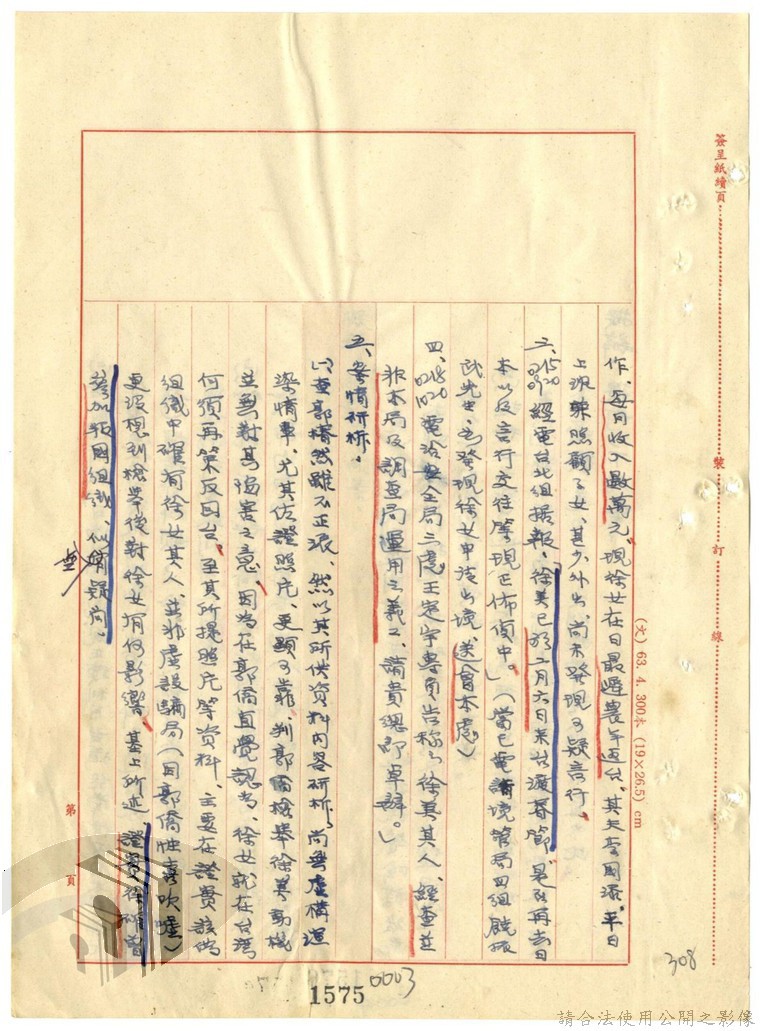 簽呈紙續頁
裝
訂
線
(火) 63. 4. 300本 (19×26.5) cm
作、每月收入數萬元。現徐女在日最遲農年返台。其夫李國源、平日
上班兼照顧子女、甚少外出、尚未發現可疑言行、
三、經電台北組据報、徐美已於二月六日來台渡春節、是否再去日
本以及言行交往等現正佈偵中。」(當已電請境管局四組饒振
武先生、如發現徐女申請出境、送會本處)
四、電洽安全局三處王定宇專員告稱:「徐美其人、經查並
非本局及調查局運用之義工、請貴總部卓辦。」
五、案情研析:
㈠查郭僑然雖不正派、然以其所供資料內容研析、尚無虛構渲
染情事、尤其佐證照片、更顯可靠、判郭僑檢舉徐美動機
並無對其傷害之意、因為在郭僑直覺認為、徐女就在台灣
何須再策反回台。至其所提照片等資料、主要在證實該偽
組織中確有徐女其人、並非虛設騙局(因郭僑性喜吹噓)
更沒想到檢舉後對徐女有何影響、基上所述、證實徐確曾
參加叛國組織、似無疑問、
第
頁
1575
0003
308
請合法使用公開之影像